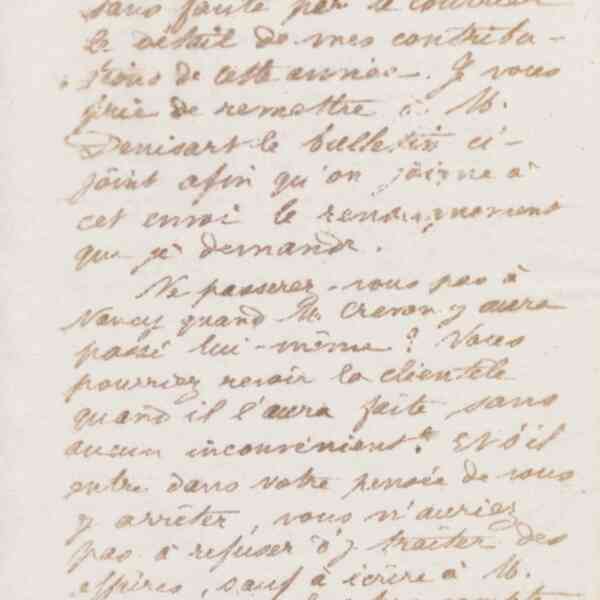 sans faute par le courrier
le détail de mes contribu-
tions de cette année. Je vous
prie de remettre à M.
Denisart le bulletin ci-
joint afin qu'on joigne à
cet envoi le
que je demande.
Ne passerez-vous pas à
Nancy quand M. Crevon y aura
passé lui-même? Vous
pourriez revoir la clientèle
quand il l'aura faite sans
aucun inconvénient. Et s'il
entre dans votre pensée de vous
y arrêter, vous n'auriez
pas à refuser d'y traiter des
affaires, sauf à écrire à M.